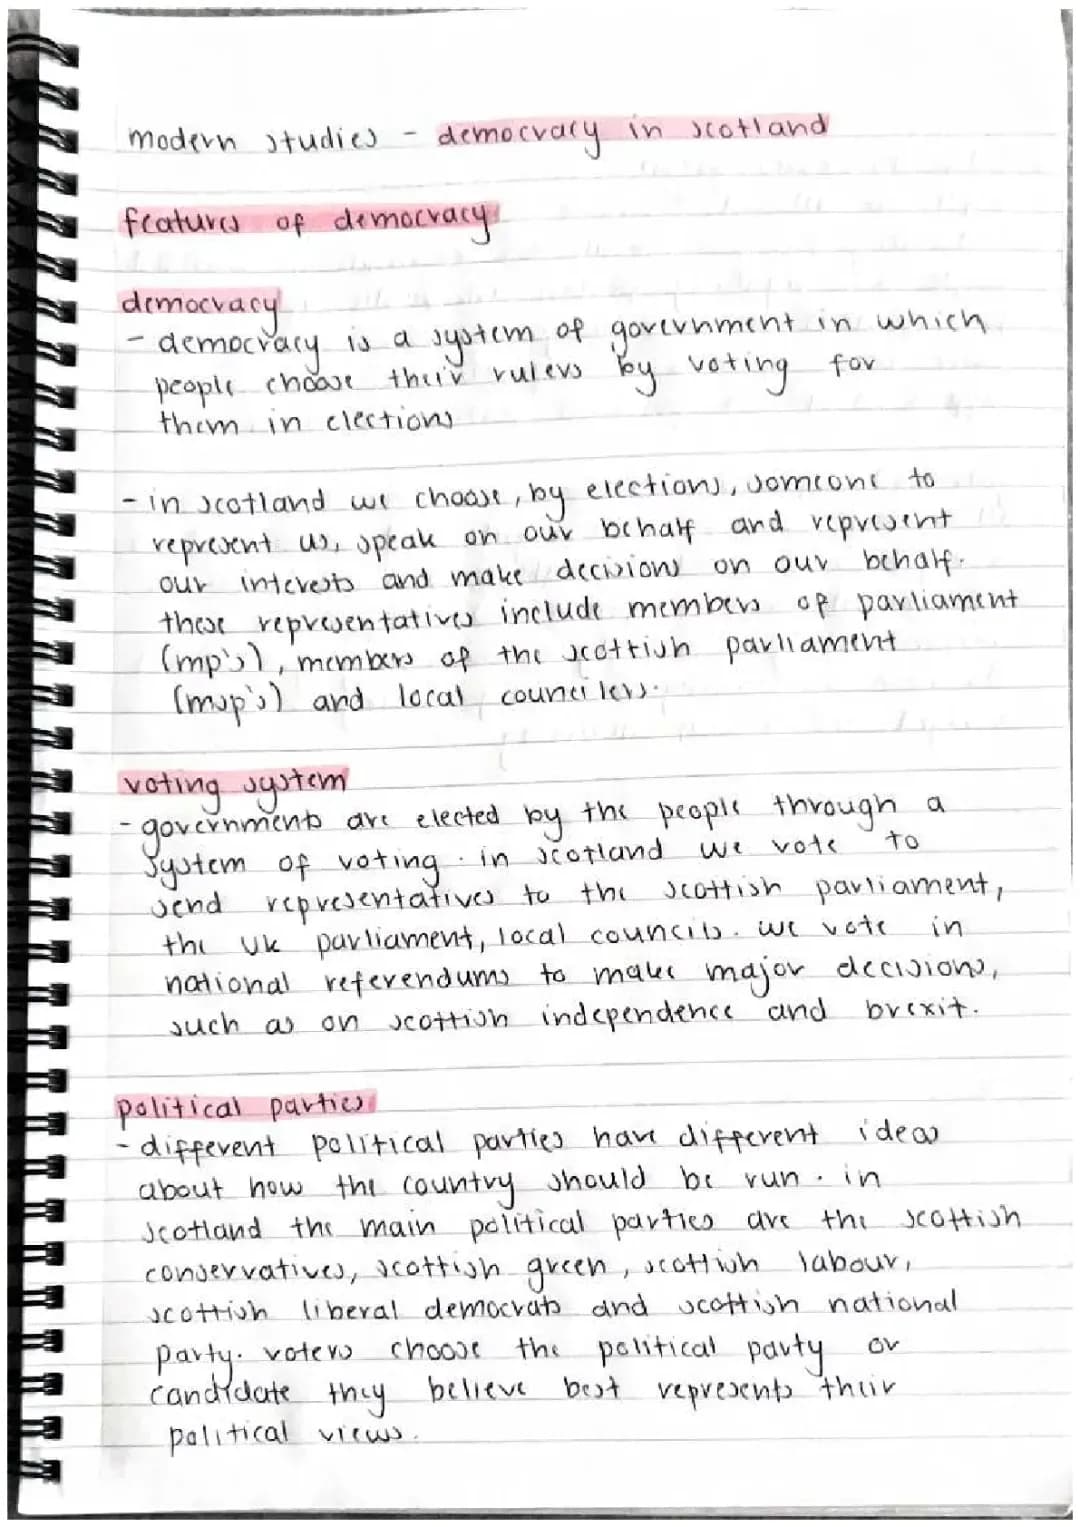 modern studies - democracy in scotland
features of democracy
democracy
- democracy is a system of government in which
people choose their rulers by voting for
them in elections
- in scotland we choose, by elections, someone to
represent us, speak on our behalf and represent
our interests and make decisions on our behalf.
these representatives include members of parliament
(mp's), members of the scottish parliament
(msp's) and local councilers.
voting system
- governments are elected by the people through a
system of voting. in scotland we vote to
send representatives to the scottish parliament,
the uk parliament, local councils. we vote in
national referendums to make major decisions,
such as on scottish independence and brexit.
political parties
- different political parties have different ideas
about how the country should be run. in
scotland the main political parties are the scottish
conservatives, scottish green, scottish labour,
scottish liberal democrats and scottish national
party. voters choose the political party or
candidate they believe best represents their
political views.